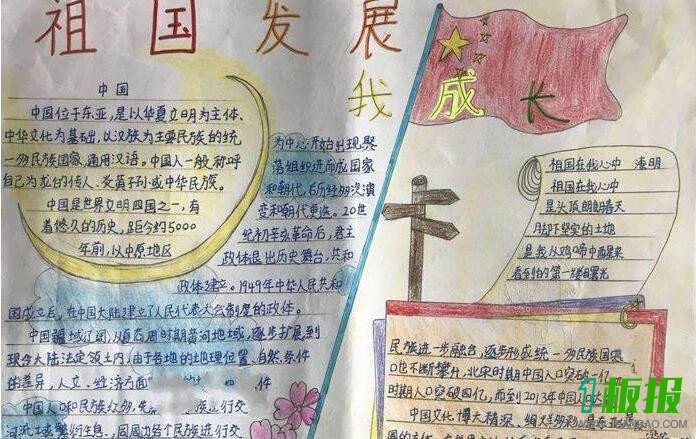 祖国发展
我成长
中国
中国位于东亚,是以华夏文明为主体、
中华文化为基础,以汉族为主要民族的统
一多民族国家,通用汉语。中国人一般称呼
自己为龙的传人、炎黄子孙或中华民族。
中国是世界文明四国之一,有
着悠久的历史,距今约5000
年前,以中原地区
为中心开始出现聚
落组织进而成国家
和朝代,后历经多次演
变和朝代更迭。20世
纪初辛亥革命后,君主
政体退出历史舞台,共和
政体建立。1949年中华人民共和
国成立后,在中国大陆建立了人民代表大会制度的政体。
中国疆域辽阔,从
时期黄河地域,逐步扩展到
现今大陆法定领土内,由于各地的地理位置、自然条件
的差异,人文、经济方面
中国人口和民族众多,先
族进行交
河流域繁衍生息,同周边各个民族进行交
祖国在我心中
祖国在我心中
是头顶朗朗春天
脚下坚实的土地
是我从鸡啼中醒来
看到的第一缕曙光
民族进一步融合,逐步形成统一多民族国家
口也不断攀升,北宋时期中国人口突破一亿
时期人口突破四亿,而到2013年中国
中国文化博大精深、绚烂多彩
板报